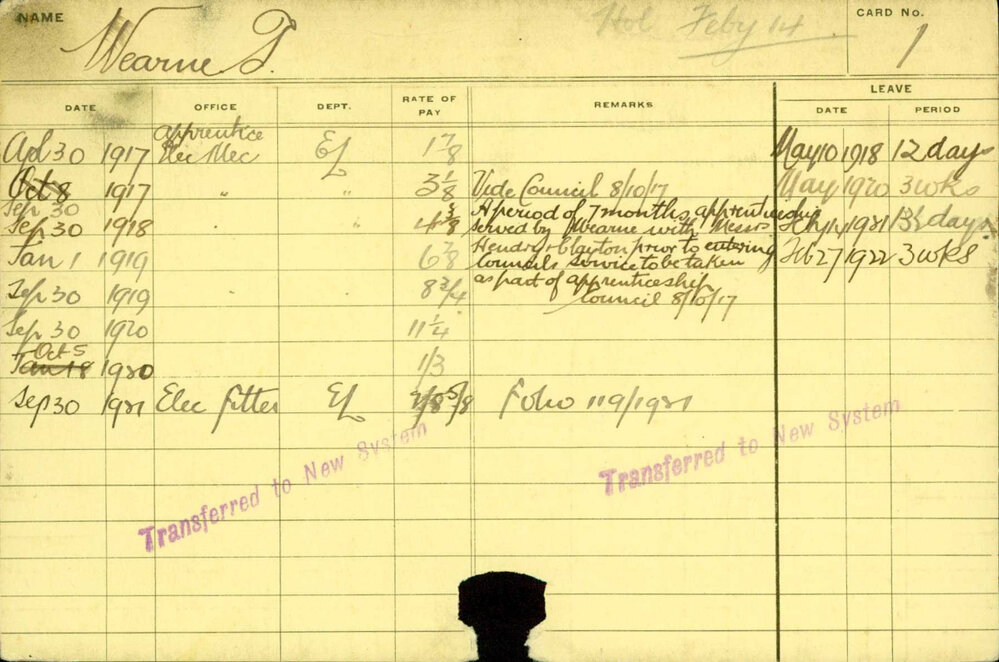 NAME
Wearne
Hol Feby 14
CARD No.
1
DATE OFFICE DEPT. RATE OF PAY REMARKS LEAVE DATE PERIOD
Apl 30 1917 apprentice Elec Mec EL 1 7/8 May 10 1918 12 days
Oct 8 1917 " " 3 1/8 Vide Council 8/10/17 May 1920 3 wks
Sep 30
Sep 30 1918 " " A period of 7 months apprenticeship 1921 days
served by Wearne with Messrs
Jan 1 1919 6 7/8 Hendry & Clayton prior to entering Feb 27 1922 3 wks
Councils service to be taken
Sep 30 1919 " " 8 3/4 as part of apprenticeship
Council 8/10/17
Sep 30 1920 11 1/4
Oct 5
Jan 18 1920 1/3
Sep 30 1921 Elec fitter EL Folio 119/1921
Transferred to New System
Transferred to New System